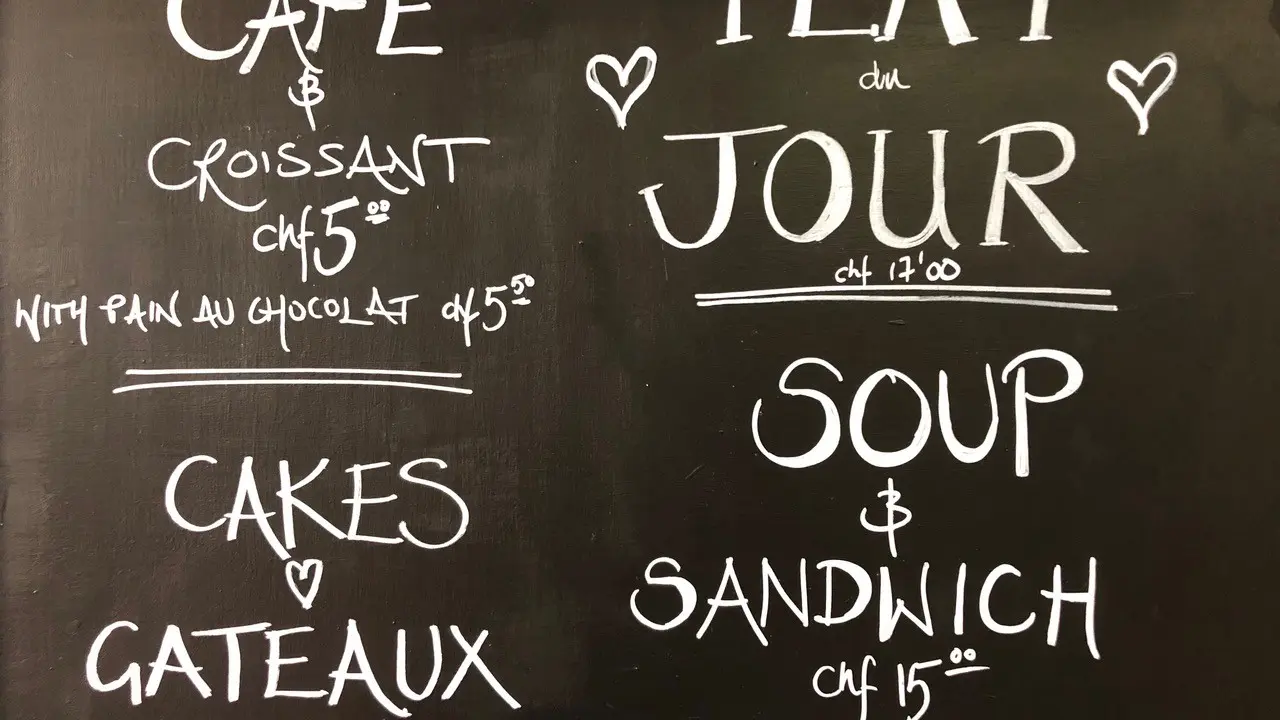 CAFE
&
CROISSANT
chf 5.00
WITH PAIN AU CHOCOLAT chf 5.50
CAKES
GATEAUX
du
JOUR
chf 17'00
SOUP
&
SANDWICH
chf 15.00